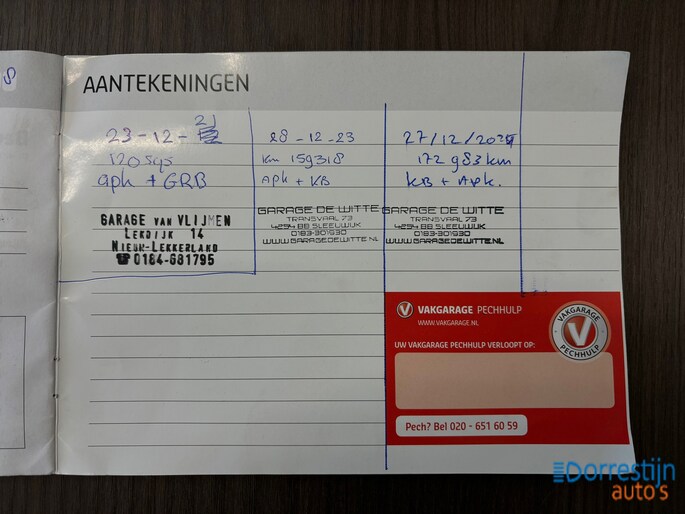 AANTEKENINGEN
23-12-21
apk + GRB
GARAGE VAN VLIJMEN
LEKDIJK 14
NIEUW-LEKKERLAND
☎ 0184-681795
28-12-23
km 159318
APK + KB
GARAGE DE WITTE
TRANSVAAL 73
4254 BB SLEEUWIJK
0183-301930
WWW.GARAGEDEWITTE.NL
27/12/2024
172983 km
KB + Apk.
GARAGE DE WITTE
TRANSVAAL 73
4254 BB SLEEUWIJK
0183-301930
WWW.GARAGEDEWITTE.NL
VAKGARAGE PECHHULP
WWW.VAKGARAGE.NL
VAKGARAGE
V
PECHHULP
UW VAKGARAGE PECHHULP VERLOOPT OP:
Pech? Bel 020 - 651 60 59
Dorrestijn
auto's